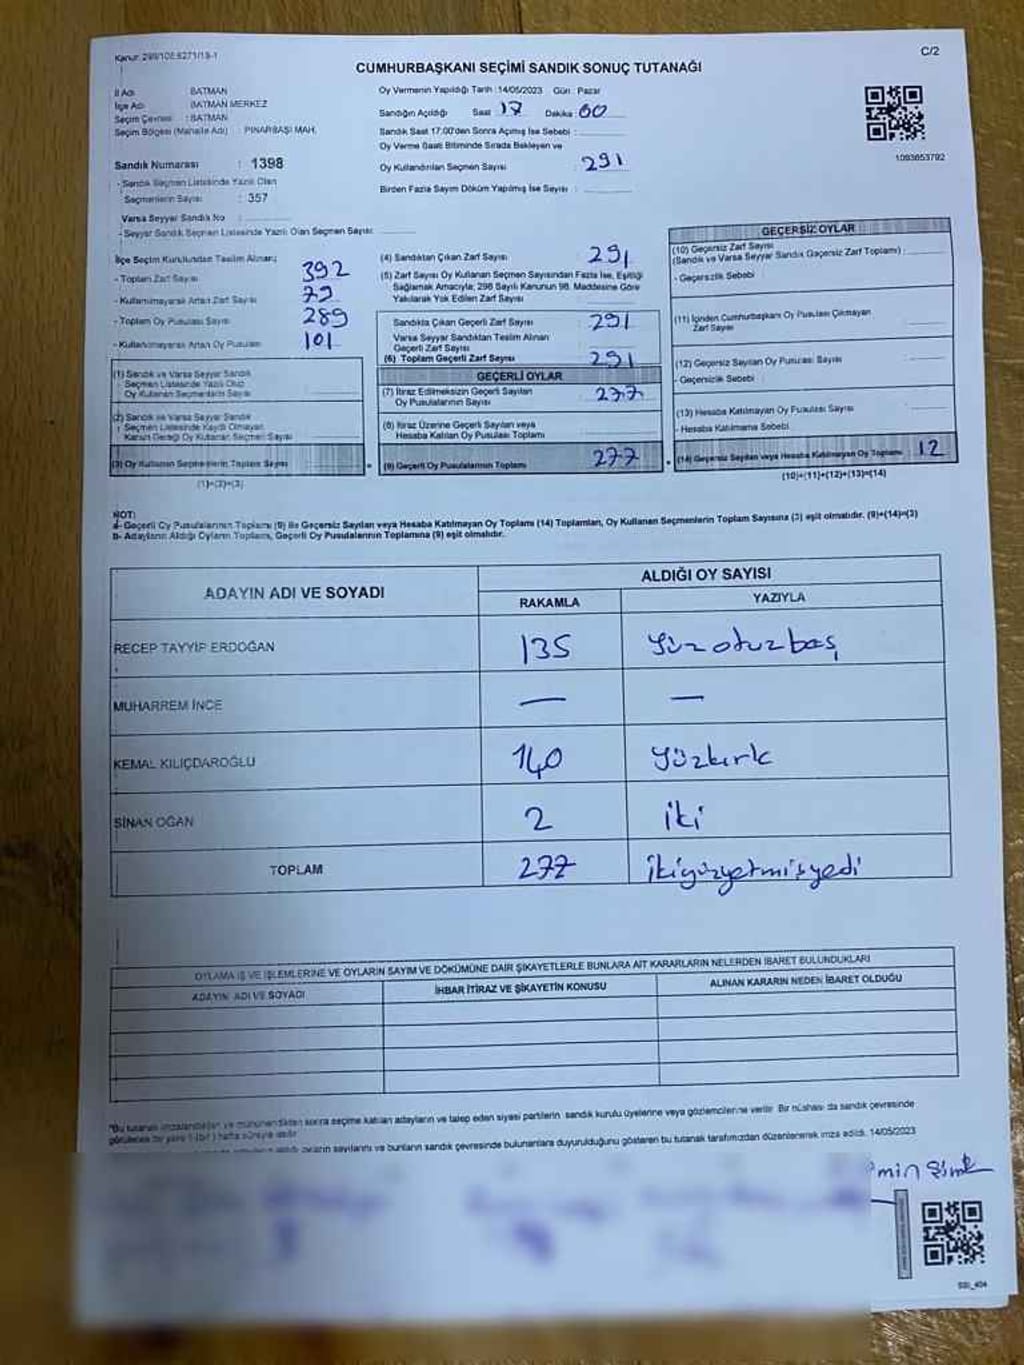 Kanun: 298/106,6271/19-1
C/2
CUMHURBAŞKANI SEÇİMİ SANDIK SONUÇ TUTANAĞI
İl Adı BATMAN
İlçe Adı BATMAN MERKEZ
Seçim Çevresi : BATMAN
Seçim Bölgesi (Mahalle Adı) : PINARBAŞI MAH.
Sandık Numarası : 1398
- Sandık Seçmen Listesinde Yazılı Olan
Seçmenlerin Sayısı : 357
Varsa Seyyar Sandık No :
- Seyyar Sandık Seçmen Listesinde Yazılı Olan Seçmen Sayısı:
Oy Vermenin Yapıldığı Tarih :14/05/2023 Gün : Pazar
Sandığın Açıldığı Saat 17 Dakika 00
Sandık Saat 17:00'den Sonra Açılmış İse Sebebi :
Oy Verme Saati Bitiminde Sırada Bekleyen ve
Oy Kullandırılan Seçmen Sayısı 291
Birden Fazla Sayım Döküm Yapılmış İse Sayısı :
1093653792
İlçe Seçim Kurulundan Teslim Alınan;
- Toplam Zarf Sayısı 392
- Kullanılmayarak Artan Zarf Sayısı 72
- Toplam Oy Pusulası Sayısı 289
- Kullanılmayarak Artan Oy Pusulası 101
(1) Sandık ve Varsa Seyyar Sandık
Seçmen Listesinde Yazılı Olup
Oy Kullanan Seçmenlerin Sayısı
(2) Sandık ve Varsa Seyyar Sandık
Seçmen Listesinde Kaydı Olmayan
Kanun Gereği Oy Kullanan Seçmen Sayısı
(3) Oy Kullanan Seçmenlerin Toplam Sayısı
(1)+(2)=(3)
(4) Sandıktan Çıkan Zarf Sayısı 291
(5) Zarf Sayısı Oy Kullanan Seçmen Sayısından Fazla İse, Eşitliği
Sağlamak Amacıyla; 298 Sayılı Kanunun 98. Maddesine Göre
Yakılarak Yok Edilen Zarf Sayısı
Sandıkta Çıkan Geçerli Zarf Sayısı 291
Varsa Seyyar Sandıktan Teslim Alınan
Geçerli Zarf Sayısı
(6) Toplam Geçerli Zarf Sayısı 291
GEÇERLİ OYLAR
(7) İtiraz Edilmeksizin Geçerli Sayılan
Oy Pusulalarının Sayısı 277
(8) İtiraz Üzerine Geçerli Sayılan veya
Hesaba Katılan Oy Pusulası Toplamı
(9) Geçerli Oy Pusulalarının Toplamı 277
GEÇERSİZ OYLAR
(10) Geçersiz Zarf Sayısı
(Sandık ve Varsa Seyyar Sandık Geçersiz Zarf Toplamı) :
- Geçersizlik Sebebi :
(11) İçinden Cumhurbaşkanı Oy Pusulası Çıkmayan
Zarf Sayısı
(12) Geçersiz Sayılan Oy Pusulası Sayısı
- Geçersizlik Sebebi :
(13) Hesaba Katılmayan Oy Pusulası Sayısı
- Hesaba Katılmama Sebebi
(14) Geçersiz Sayılan veya Hesaba Katılmayan Oy Toplamı 12
(10)+(11)+(12)+(13)=(14)
NOT:
a- Geçerli Oy Pusulalarının Toplamı (9) ile Geçersiz Sayılan veya Hesaba Katılmayan Oy Toplamı (14) Toplamları, Oy Kullanan Seçmenlerin Toplam Sayısına (3) eşit olmalıdır. (9)+(14)=(3)
b- Adayların Aldığı Oyların Toplamı, Geçerli Oy Pusulalarının Toplamına (9) eşit olmalıdır.
ADAYIN ADI VE SOYADI ALDIĞI OY SAYISI
RAKAMLA YAZIYLA
RECEP TAYYİP ERDOĞAN 135 Yüzotuzbaş
MUHARREM İNCE — —
KEMAL KILIÇDAROĞLU 140 Yüzkırk
SİNAN OĞAN 2 iki
TOPLAM 277 ikiyüzyetmişyedi
OYLAMA İŞ VE İŞLEMLERİNE VE OYLARIN SAYIM VE DÖKÜMÜNE DAİR ŞİKAYETLERLE BUNLARA AİT KARARLARIN NELERDEN İBARET BULUNDUKLARI
ADAYIN ADI VE SOYADI İHBAR İTİRAZ VE ŞİKAYETİN KONUSU ALINAN KARARIN NEDEN İBARET OLDUĞU
"Bu tutanak imzalandıktan ve mühürlendikten sonra seçime katılan adayların ve talep eden siyasi partilerin sandık kurulu üyelerine veya gözlemcilerine verilir. Bir nüshası da sandık çevresinde
görülecek bir yere 1 (bir) hafta süreyle asılır.
oyların sayılarını ve bunların sandık çevresinde bulunanlara duyurulduğunu gösteren bu tutanak tarafımızdan düzenlenerek imza edildi. 14/05/2023